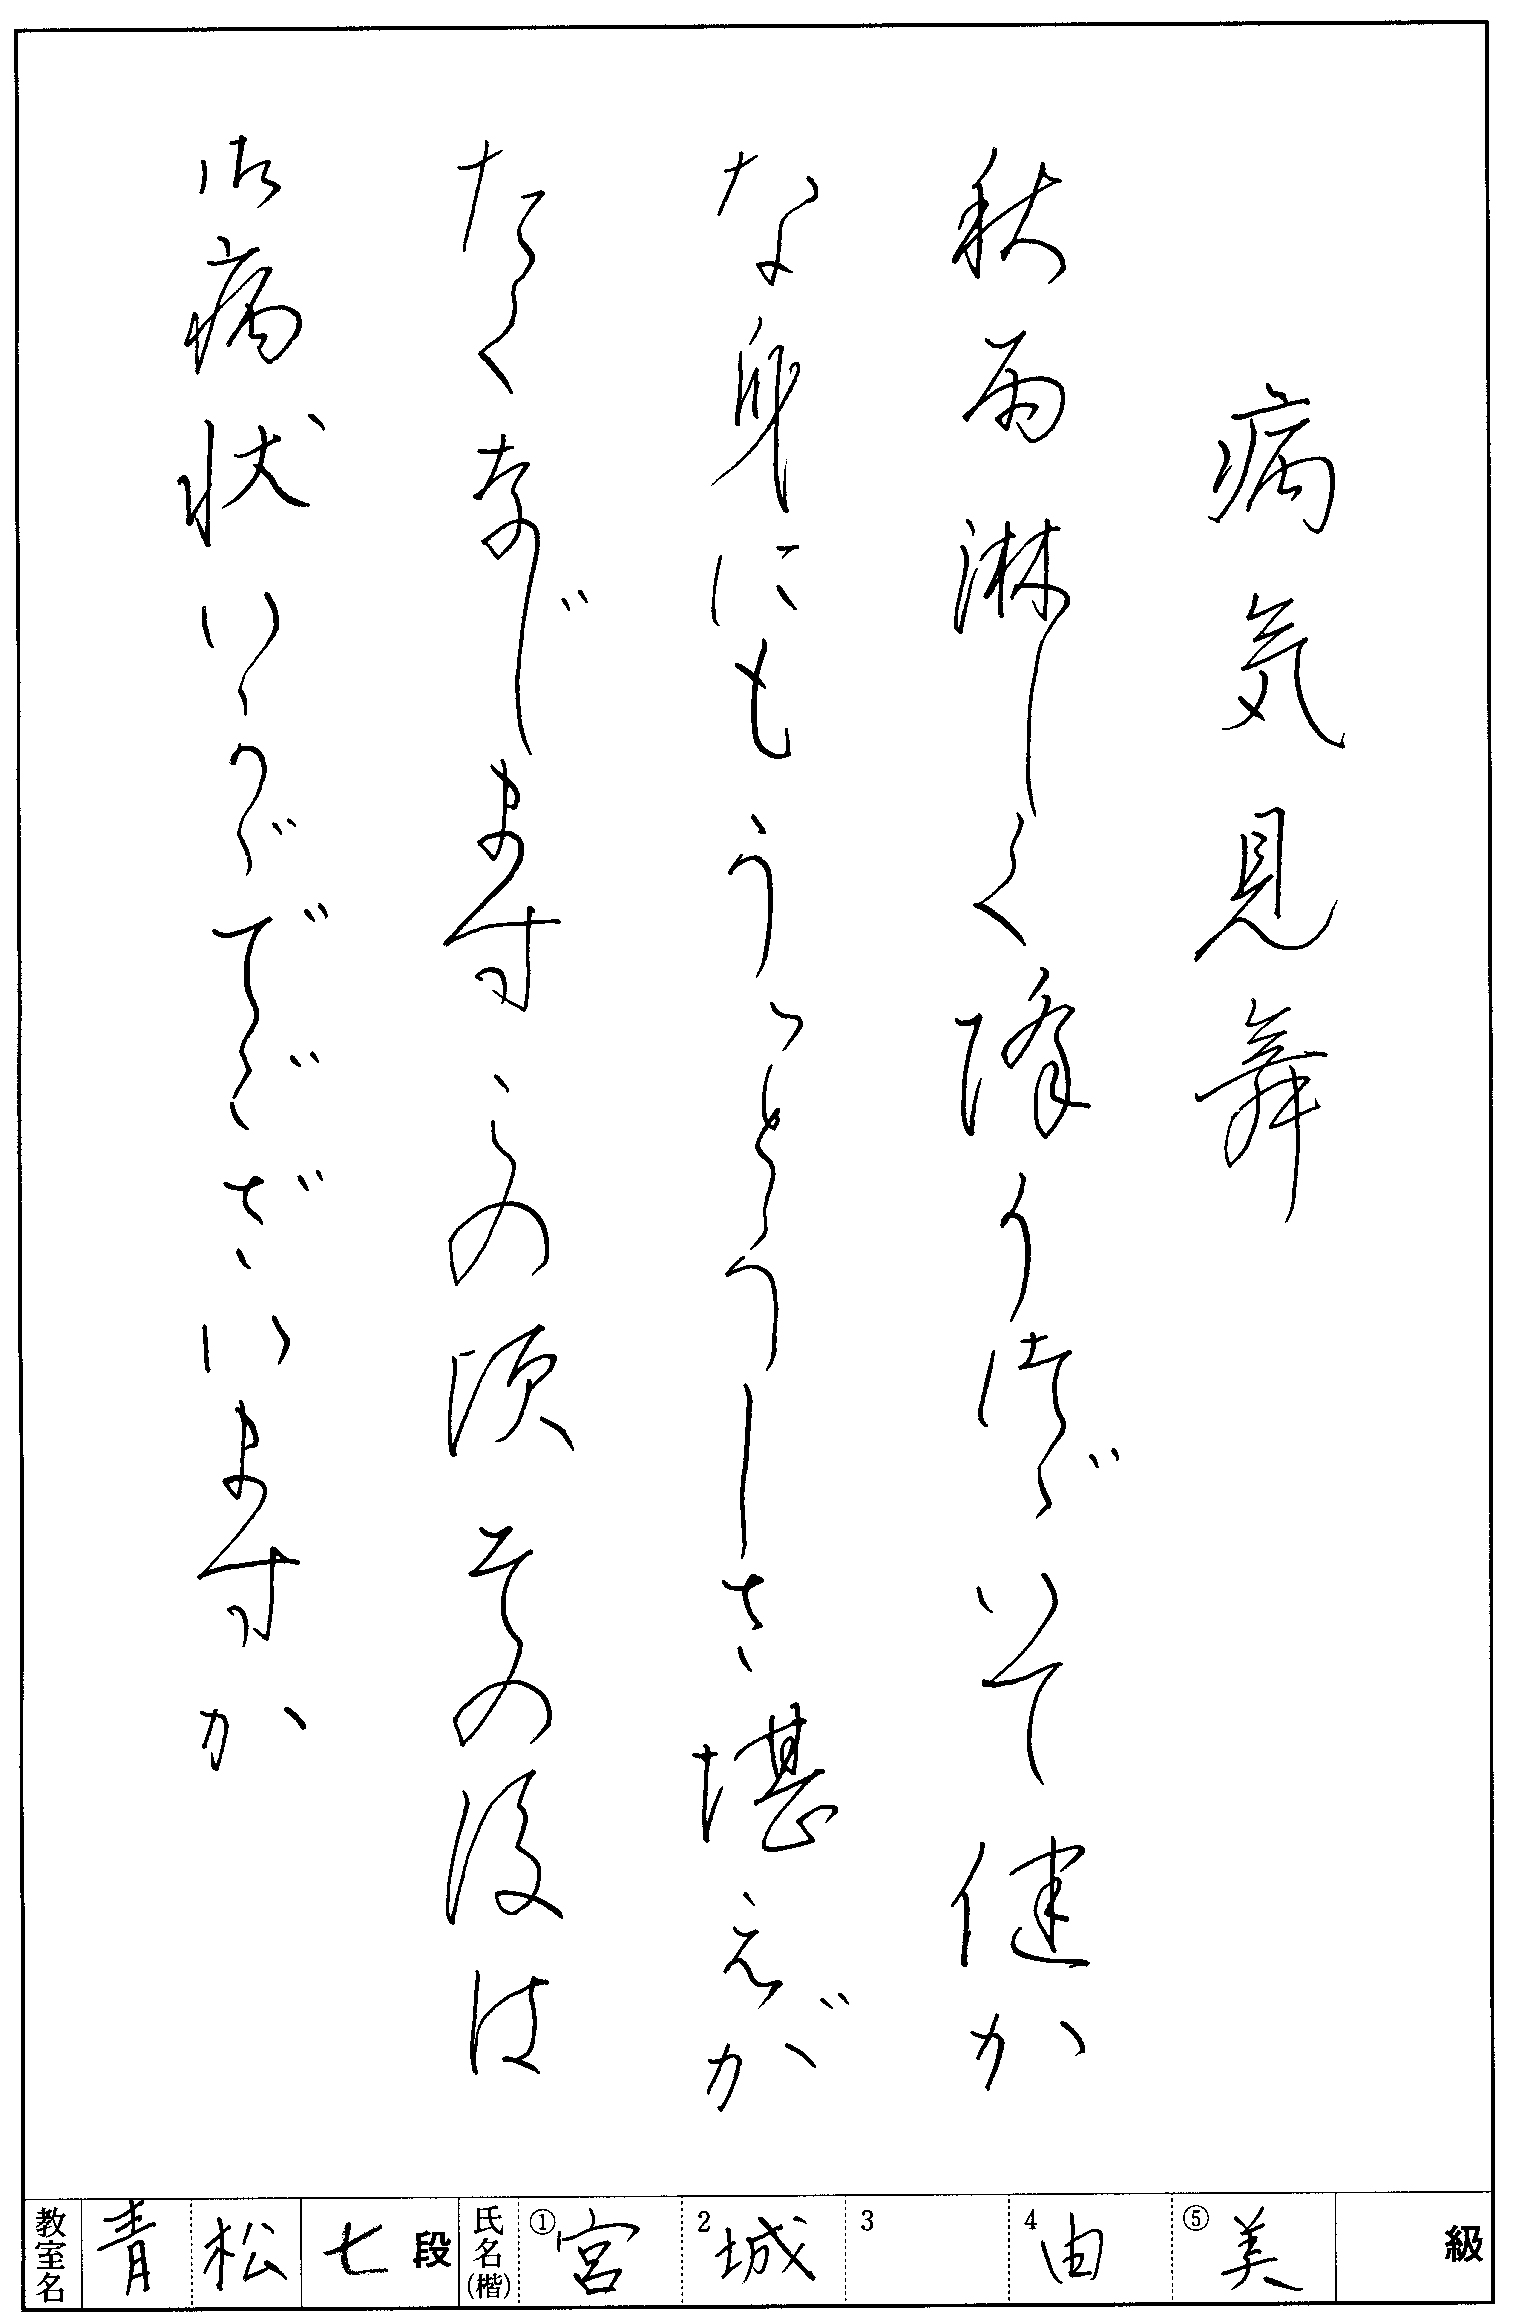 病気見舞
秋雨淋しく降りつづいて健か
な身にもうっとうしさ堪えが
たくなじます この頃その後は
御病状いかがでございますか
教室名 青松 七段 氏名(楷) ①宮 2城 3 4由 ⑤美 級